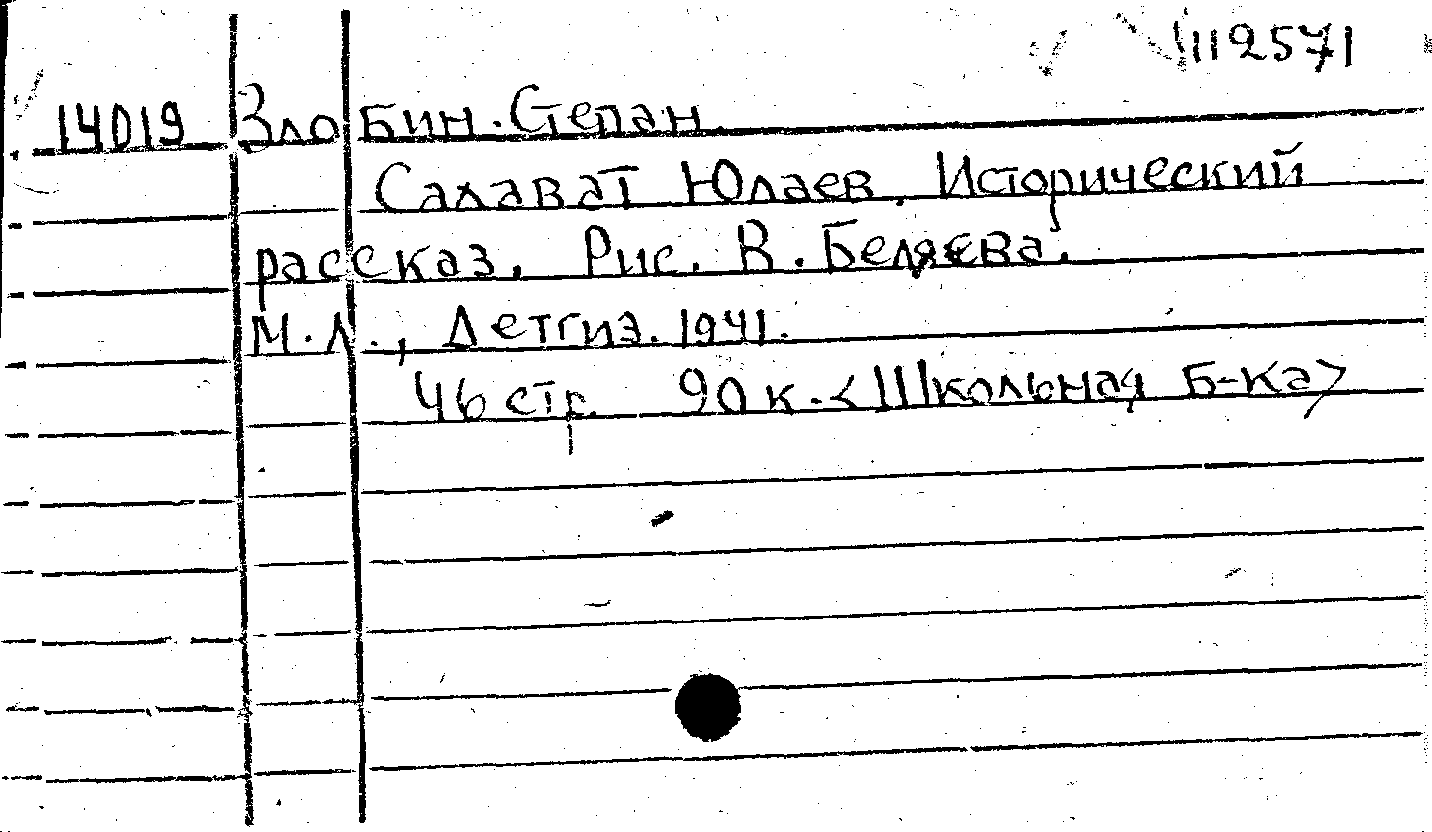 112571
14019 Злобин. Степан
Салават Юлаев. Исторический
рассказ. Рис. В. Беляева.
М.Л., Детгиз. 1941.
46 стр. 90 к. <Школьная Б-ка>